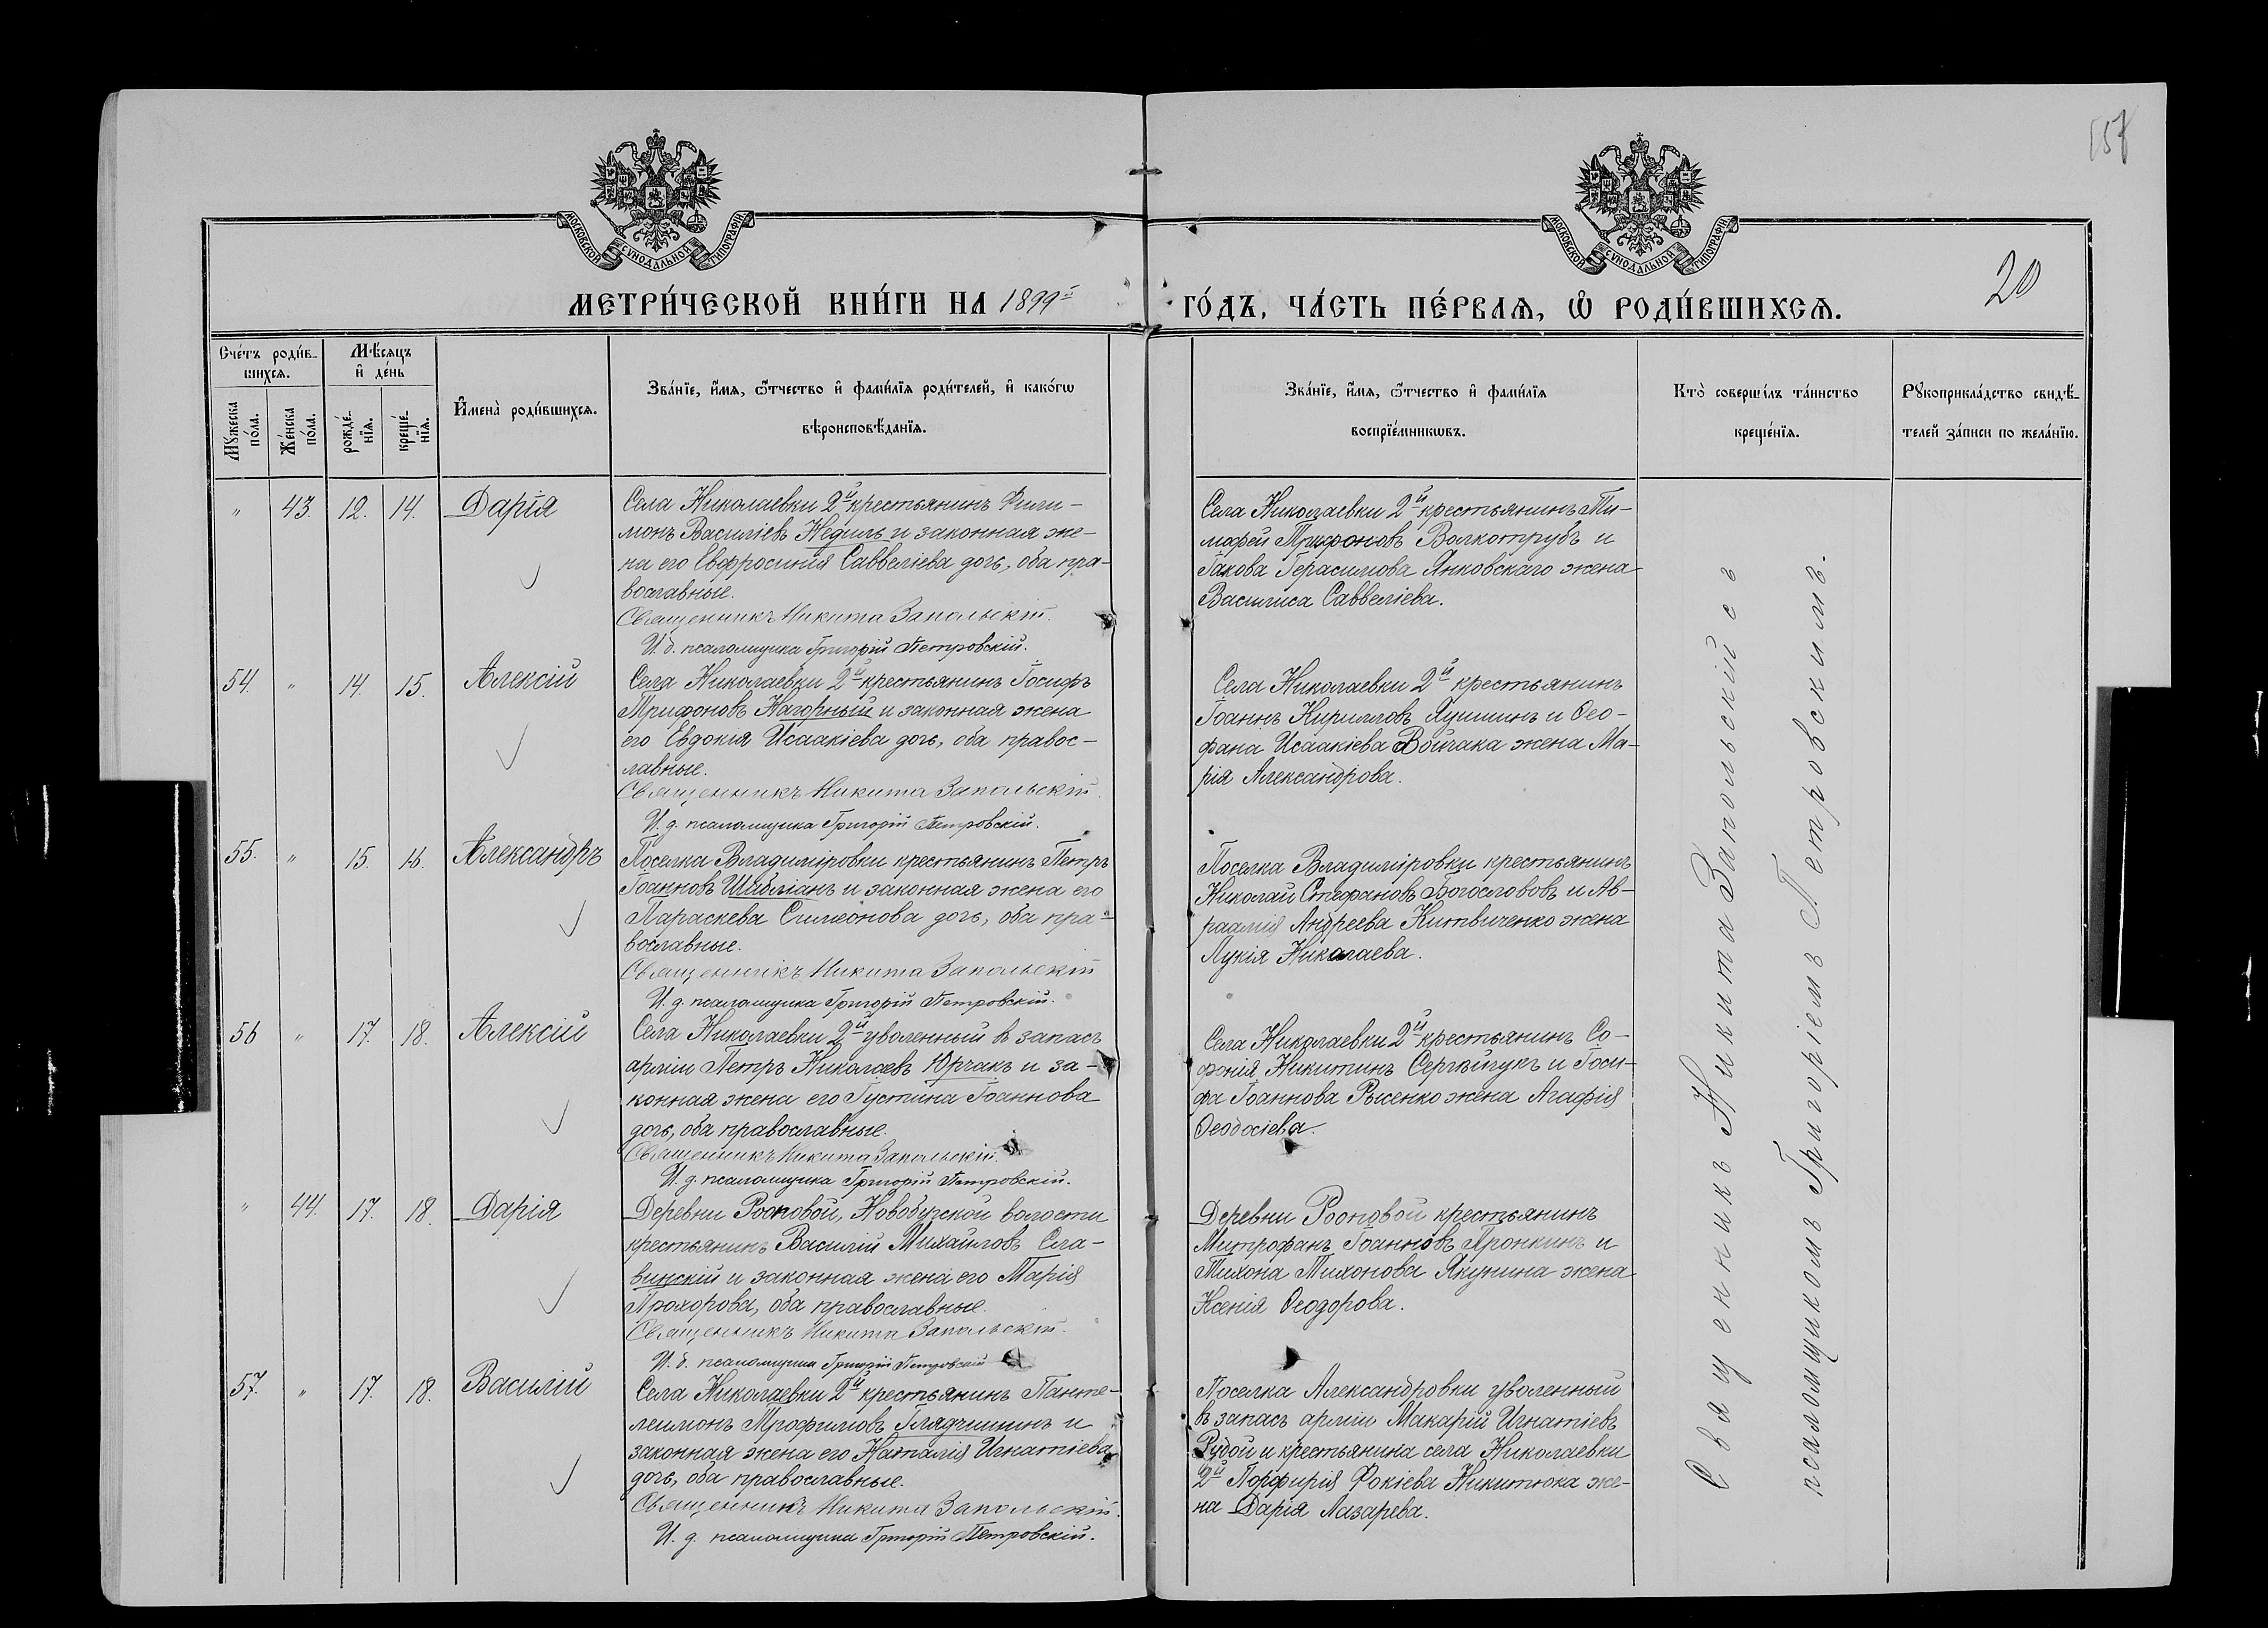 158
МОСКОВСКОЙ СѴНОДАЛЬНОЙ ТИПОГРАФІИ
МОСКОВСКОЙ СѴНОДАЛЬНОЙ ТИПОГРАФІИ
20
МЕТРИ́ЧЕСКОЙ КНИ́ГИ НА 1899й ГО́ДЪ, ЧА́СТЬ ПЕ́РВАѦ, Ѽ РОДИ́ВШИХСѦ.
Сче́тъ роди́в-
шихсѧ.
Мѣ́сѧцъ
и҆ де́нь
Мꙋ́жеска
по́ла.
Же́нска
по́ла.
рожде́-
нїѧ.
креще́-
нїѧ.
И҆мена̀ роди́вшихсѧ.
Зва́нїе, и҆́мѧ, ѻ҆́тчество и҆ фами́лїѧ роди́телей, и҆ како́гѡ
вѣроисповѣ́данїѧ.
Зва́нїе, и҆́мѧ, ѻ҆́тчество и҆ фами́лїѧ
воспрїе́мникѡвъ.
Кто̀ соверши́лъ та́инство
креще́нїѧ.
Рꙋкоприкла́дство свидѣ́-
телей за́писи по жела́нїю.
" 43. 12. 14. Дарія
Села Николаевки 2й крестьянинъ Фили-
монъ Василіевъ Недиль и законная же-
на его Евфросинія Савваліева дочь, оба пра-
вославные.
Священникъ Никита Запольскій.
И. д. псаломщика Григорій Петровскій.
Села Николаевки 2й крестьянинъ Ти-
мофей Трифоновъ Волкотрубъ и
Іакова Герасимова Янковскаго жена
Василиса Савваліева.
54. " 14. 15. Алексій
Села Николаевки 2й крестьянинъ Іосифъ
Трифоновъ Нагорный и законная жена
его Евдокія Исаакіева дочь, оба правос-
лавные.
Священникъ Никита Запольскій.
И. д. псаломщика Григорій Петровскій.
Села Николаевки 2й крестьянинъ
Іоаннъ Кирилловъ Яушинъ и Ѳео-
фана Исаакіева Войчака жена Ма-
рія Александрова.
55. " 15. 16. Александръ
Поселка Владиміровки крестьянинъ Петръ
Іоанновъ Шабліанъ и законная жена его
Параскева Симеонова дочь, оба пра-
вославные.
Священникъ Никита Запольскій
И. д. псаломщика Григорій Петровскій.
Поселка Владиміровки крестьянинъ
Николай Стефановъ Богослововъ и Ав-
раамія Андреева Китвиченко жена
Лукія Николаева.
56 " 17. 18. Алексій
Села Николаевки 2й уволенный въ запасъ
арміи Петръ Николаевъ Юрчакъ и за-
конная жена его Іустина Іоаннова
дочь, оба православные.
Священникъ Никита Запольскій.
И. д. псаломщика Григорій Петровскій.
Села Николаевки 2й крестьянинъ Со-
фонія Никитинъ Сергѣйчукъ и Іоси-
фа Іоаннова Рысенко жена Агафія
Ѳеодосіева.
" 44. 17. 18. Дарія
Деревни Рооповой, Новобугской волости
крестьянинъ Василій Михайловъ Сла-
винскій и законная жена его Марія
Прохорова, оба православные.
Священникъ Никита Запольскій.
И. д. псаломщика Григорій Петровскій
Деревни Рооповой крестьянинъ
Митрофанъ Іоанновъ Пронкинъ и
Тихона Тихонова Якунина жена
Ксенія Ѳеодорова.
57. " 17. 18. Василій
Села Николаевки 2й крестьянинъ Панте-
леимонъ Трофимовъ Глядчишинъ и
законная жена его Наталія Игнатіева
дочь, оба православные.
Священникъ Никита Запольскій.
И. д. псаломщика Григорій Петровскій.
Поселка Александровки уволенный
въ запасъ арміи Макарій Игнатіевъ
Рудой и крестьянина села Николаевки
2й Порфирія Фокіева Никитюка же-
на Дарія Лазарева.
Священникъ Никита Запольскій съ
псаломщикомъ Григоріемъ Петровскимъ.